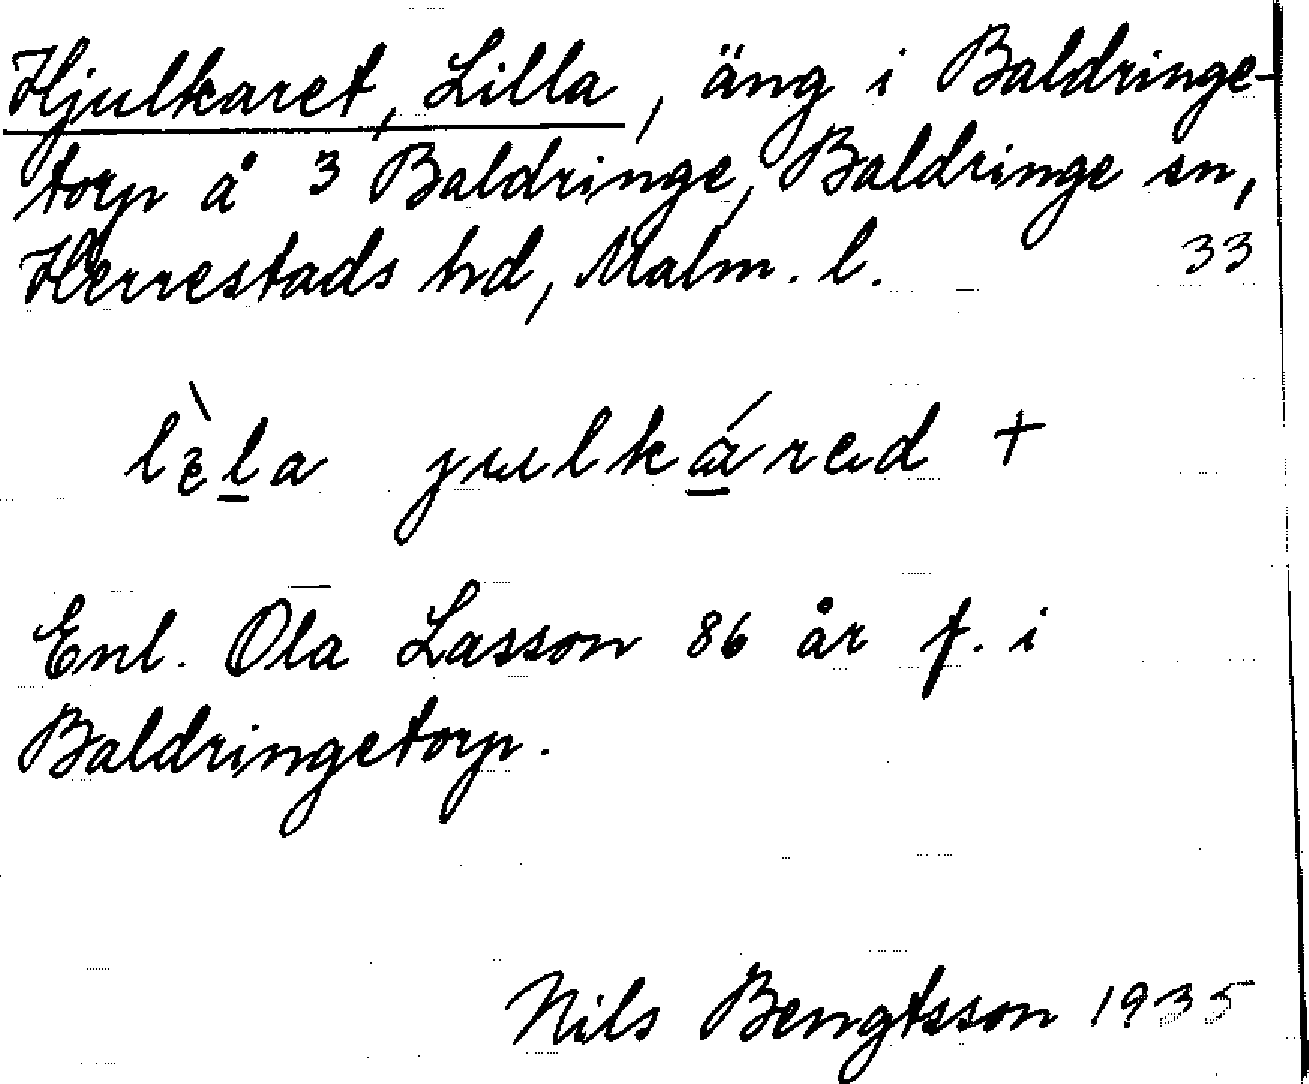 Hjulkaret, Lilla, äng i Baldringe-
torp å 3 Baldringe, Baldringe sn,
Herrestads hd, Malm. l. 33
Enl. Ola Lasson 86 år f. i
Baldringetorp.
Nils Bengtsson 1935